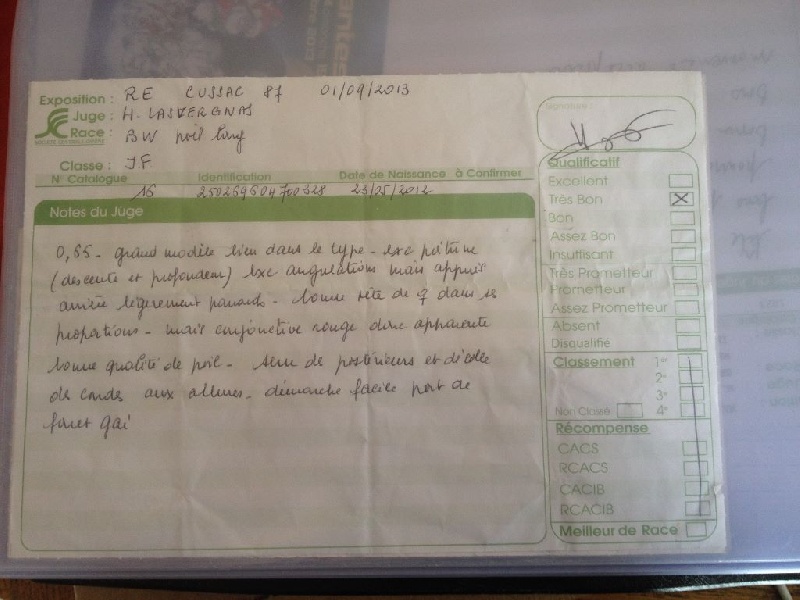 Exposition : RE CUSSAC 87 01/09/2013
Juge : H. LASVERGNAS
Race : BW poil long
Classe : JF
N° Catalogue Identification Date de Naissance à Confirmer
16
Notes du Juge
0,65 - grand modèle bien dans le type - exc poitrine
(descente et profondeur) exc angulations mais appuis
arrière légèrement panards - bonne tête de ♀ dans ses
proportions - mais conjonctive rouge donc apparente
bonne qualité de poil - serre de postérieurs et décolle
de coudes aux allures - démarche facile port de
fouet gai
Signature :
Qualificatif
Excellent
Très Bon
Bon
Assez Bon
Insuffisant
Très Prometteur
Prometteur
Assez Prometteur
Absent
Disqualifié
Classement 1er
2e
3e
Non Classé 4e
Récompense
CACS
RCACS
CACIB
RCACIB
Meilleur de Race